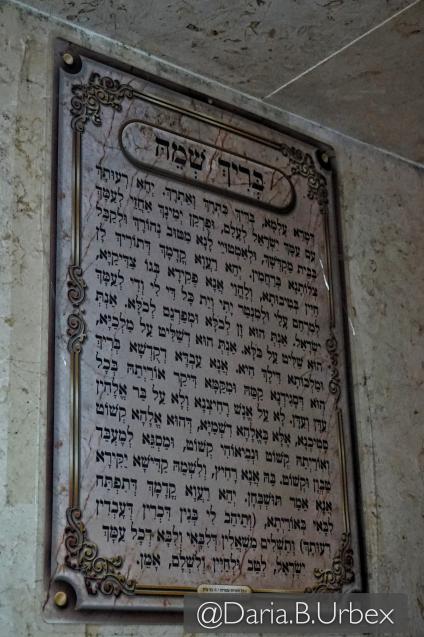 בְּרִיךְ שְׁמֵהּ
דְּמָרֵא עָלְמָא, בְּרִיךְ כִּתְרָךְ וְאַתְרָךְ. יְהֵא רְעוּתָךְ
עִם עַמָּךְ יִשְׂרָאֵל לְעָלַם, וּפֻרְקַן יְמִינָךְ אַחֲזֵי לְעַמָּךְ
בְּבֵית מִקְדָּשָׁךְ, וּלְאַמְטוּיֵי לָנָא מִטּוּב נְהוֹרָךְ וּלְקַבֵּל
צְלוֹתָנָא בְּרַחֲמִין. יְהֵא רַעֲוָא קֳדָמָךְ דְּתוֹרִיךְ לָן
חַיִּין בְּטִיבוּתָא, וְלֶהֱוֵי אֲנָא פְקִידָא בְּגוֹ צַדִּיקַיָּא,
לְמִרְחַם עָלַי וּלְמִנְטַר יָתִי וְיָת כָּל דִּי לִי וְדִי לְעַמָּךְ
יִשְׂרָאֵל. אַנְתְּ הוּא זָן לְכֹלָּא וּמְפַרְנֵס לְכֹלָּא, אַנְתְּ
הוּא שַׁלִּיט עַל כֹּלָּא. אַנְתְּ הוּא דְּשַׁלִּיט עַל מַלְכַיָּא,
וּמַלְכוּתָא דִּילָךְ הִיא. אֲנָא עַבְדָּא דְּקֻדְשָׁא בְּרִיךְ
הוּא דְּסָגִידְנָא קַמֵּהּ וּמִקַּמָּא דִּיקַר אוֹרַיְתֵהּ בְּכָל
עִדָּן וְעִדָּן. לָא עַל אֱנָשׁ רָחִיצְנָא וְלָא עַל בַּר אֱלָהִין
סָמִיכְנָא, אֶלָּא בֶּאֱלָהָא דִשְׁמַיָּא, דְּהוּא אֱלָהָא קְשׁוֹט
וְאוֹרַיְתֵהּ קְשׁוֹט וּנְבִיאוֹהִי קְשׁוֹט, וּמַסְגֵּא לְמֶעְבַּד
טַבְוָן וּקְשׁוֹט. בֵּהּ אֲנָא רָחִיץ, וְלִשְׁמֵהּ קַדִּישָׁא יַקִּירָא
אֲנָא אֵמַר תֻּשְׁבְּחָן. יְהֵא רַעֲוָא קֳדָמָךְ דְּתִפְתַּח
לִבָּאִי בְּאוֹרַיְתָא, (וְתֵיהַב לִי בְּנִין דִּכְרִין דְּעָבְדִין
רְעוּתָךְ) וְתַשְׁלִים מִשְׁאֲלִין דְּלִבָּאִי וְלִבָּא דְכָל עַמָּךְ
יִשְׂרָאֵל, לְטַב וּלְחַיִּין וְלִשְׁלָם, אָמֵן.
@Daria.B.Urbex